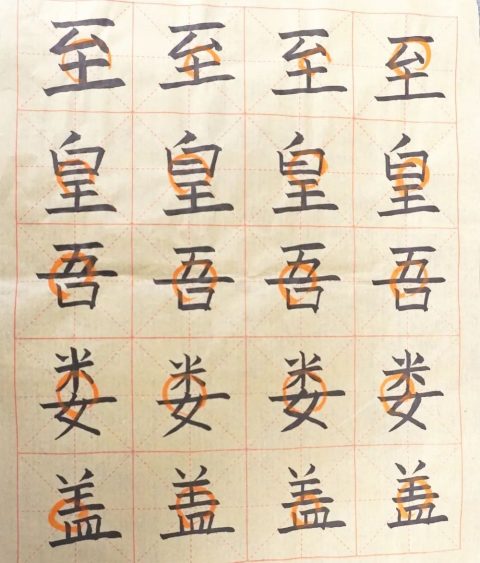 至至至至
皇皇皇皇
吾吾吾吾
娄娄娄娄
盖盖盖盖